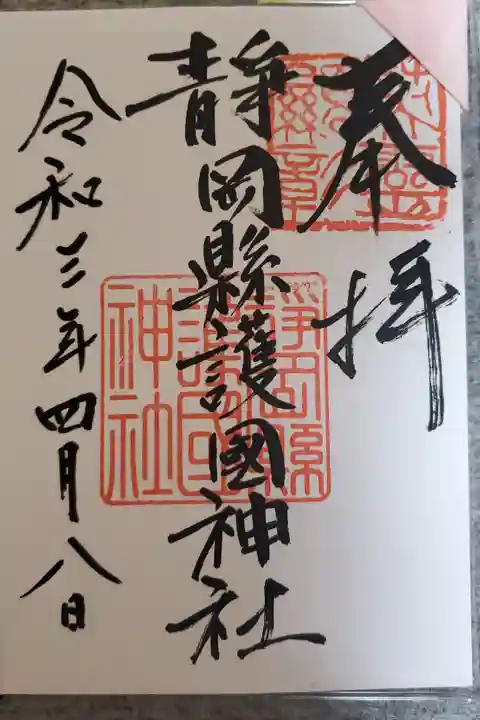 奉拝
靜岡縣護國神社
令和三年四月八日
靜岡縣
護國
神社